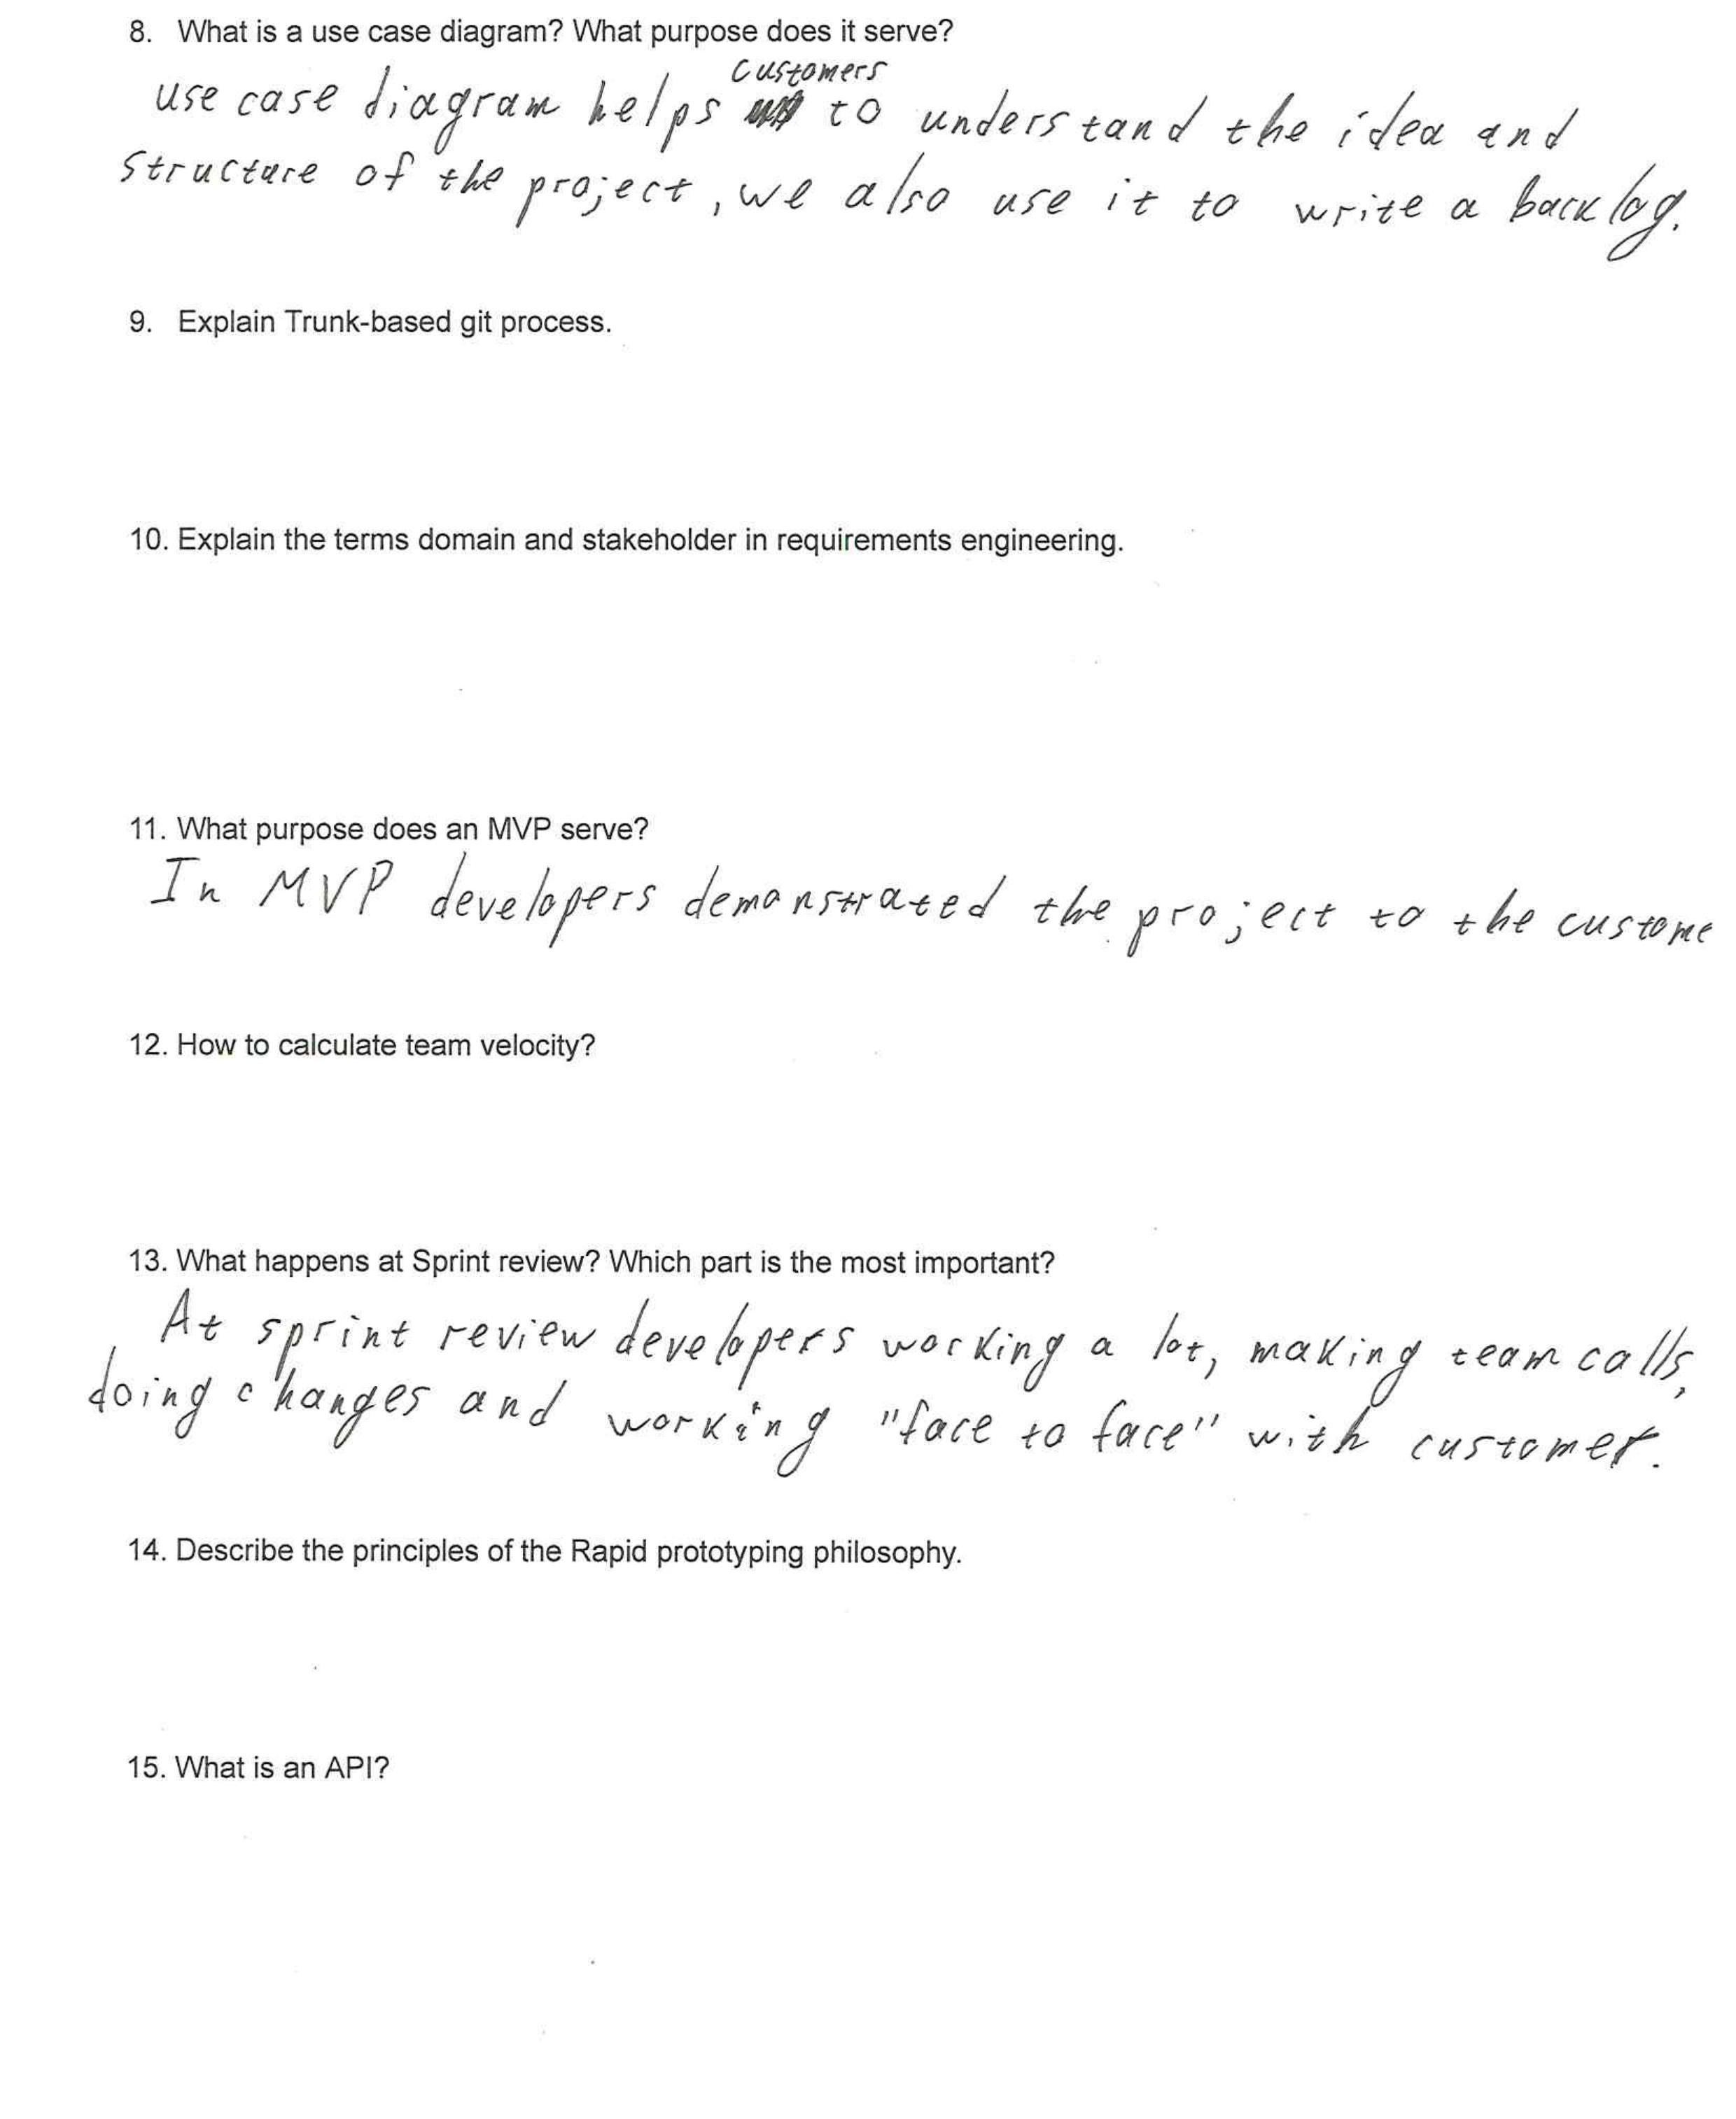 8. What is a use case diagram? What purpose does it serve?
customers
use case diagram helps to understand the idea and
structure of the project, we also use it to write a backlog.
9. Explain Trunk-based git process.
10. Explain the terms domain and stakeholder in requirements engineering.
11. What purpose does an MVP serve?
In MVP developers demonstrated the project to the custome
12. How to calculate team velocity?
13. What happens at Sprint review? Which part is the most important?
At sprint review developers working a lot, making team calls,
doing changes and working "face to face" with customer.
14. Describe the principles of the Rapid prototyping philosophy.
15. What is an API?